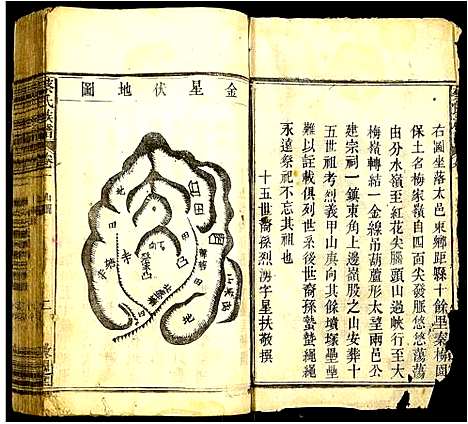 右圖坐落太邑東鄉距縣十餘里秦楊園
保土名梅家嶺自四面尖發脈悠悠蕩蕩
由分水嶺至紅花尖腦頭山過峽行至大
梅嶺轉結一金線吊葫蘆形太皇兩邑公
建宗祠一鎮東角上邊嶺股之山安葬十
五世祖考烈義甲山庚向其餘墳塚壘壘
難以註載俱列世系後世裔孫蟄蟄繩繩
永遠祭祀不忘其祖也
十五世裔孫烈湧字星扶敬撰
金星伏地圖
田
田
地
塔
地